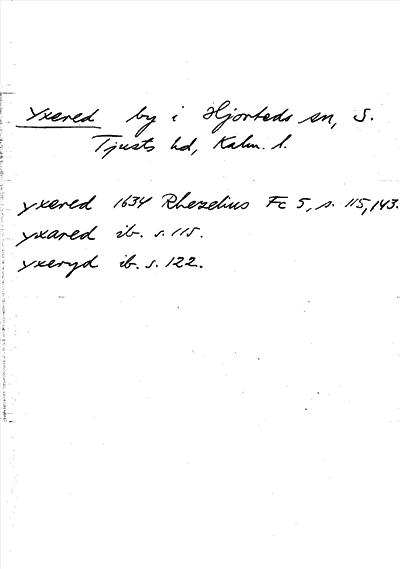 Yxered by i Hjorteds sn, S.
Tjusts hd, Kalm. l.
yxered 1634 Rhezelius Fc 5, s. 115, 143.
yxared ib. s. 115.
yxeryd ib. s. 122.